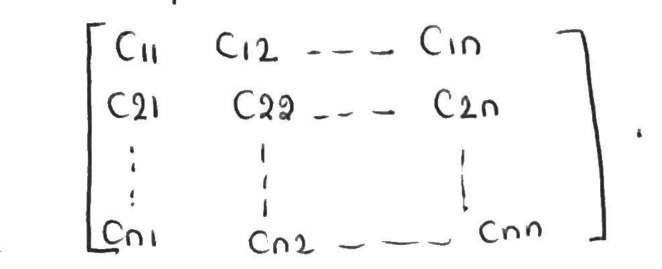 [ C11 C12 --- C1n ]
C21 C22 --- C2n
⋮ ⋮ ⋮
Cn1 Cn2 --- Cnn .